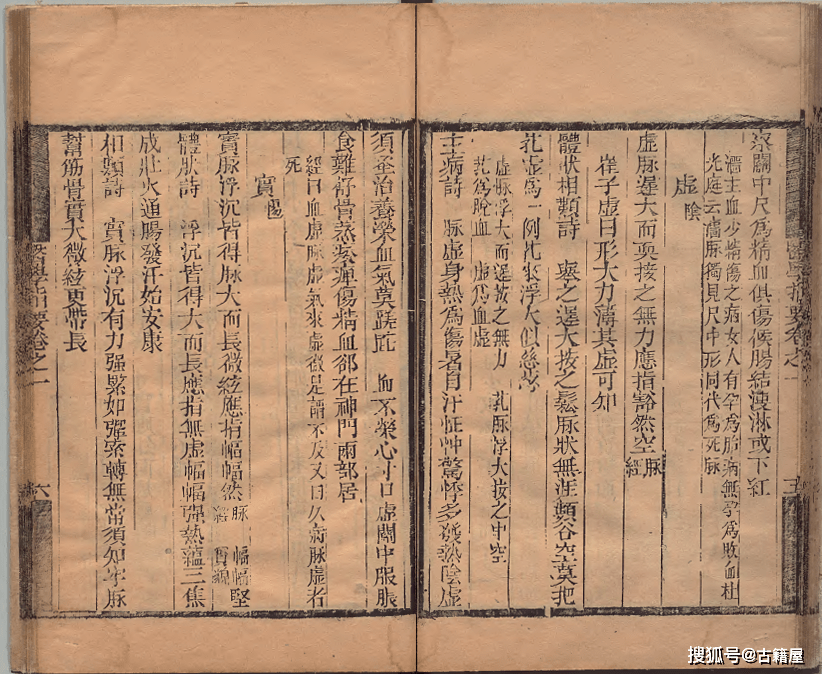 寒關中尺為精血俱傷候腸結溲淋或下紅
濇主血少精傷之病女人有孕為胎病無孕為敗血杜
光庭云濇脉獨見尺中形同代為死脉
虚陰
虚脉遲大而耎按之無力應指豁然空脉經
崔子虚曰形大力薄其虚可知
體狀相類詩 舉之遲大按之鬆脉狀無涯類谷空莫把
芤虚為一例芤來浮大似慈葱
虚脉浮大而遲按之無力 芤脉浮大按之中空
芤為脫血 虚為血虚
主病詩 脉虚身熱為傷暑自汗怔忡驚悸多發熱陰虚
須早治養榮血氣莫蹉跎 血不榮心寸口虚關中腹脹
食難舒骨蒸痿痺傷精血卻在神門兩部居
經曰血虚脉虚氣來虚微是謂不及又曰久病脉虚者
死
實陽
實脉浮沉皆得脉大而長微絃應指愊愊然脉經 愊愊堅實貌
體狀詩 浮沉皆得大而長應指無虚愊愊彊熱蘊三焦
成壯火通腸發汗始安康
相類詩 實脉浮沉有力强緊如彈索轉無常須知牢脉
幫筋骨實大微絃更帶長
六
搜狐号@古籍屋